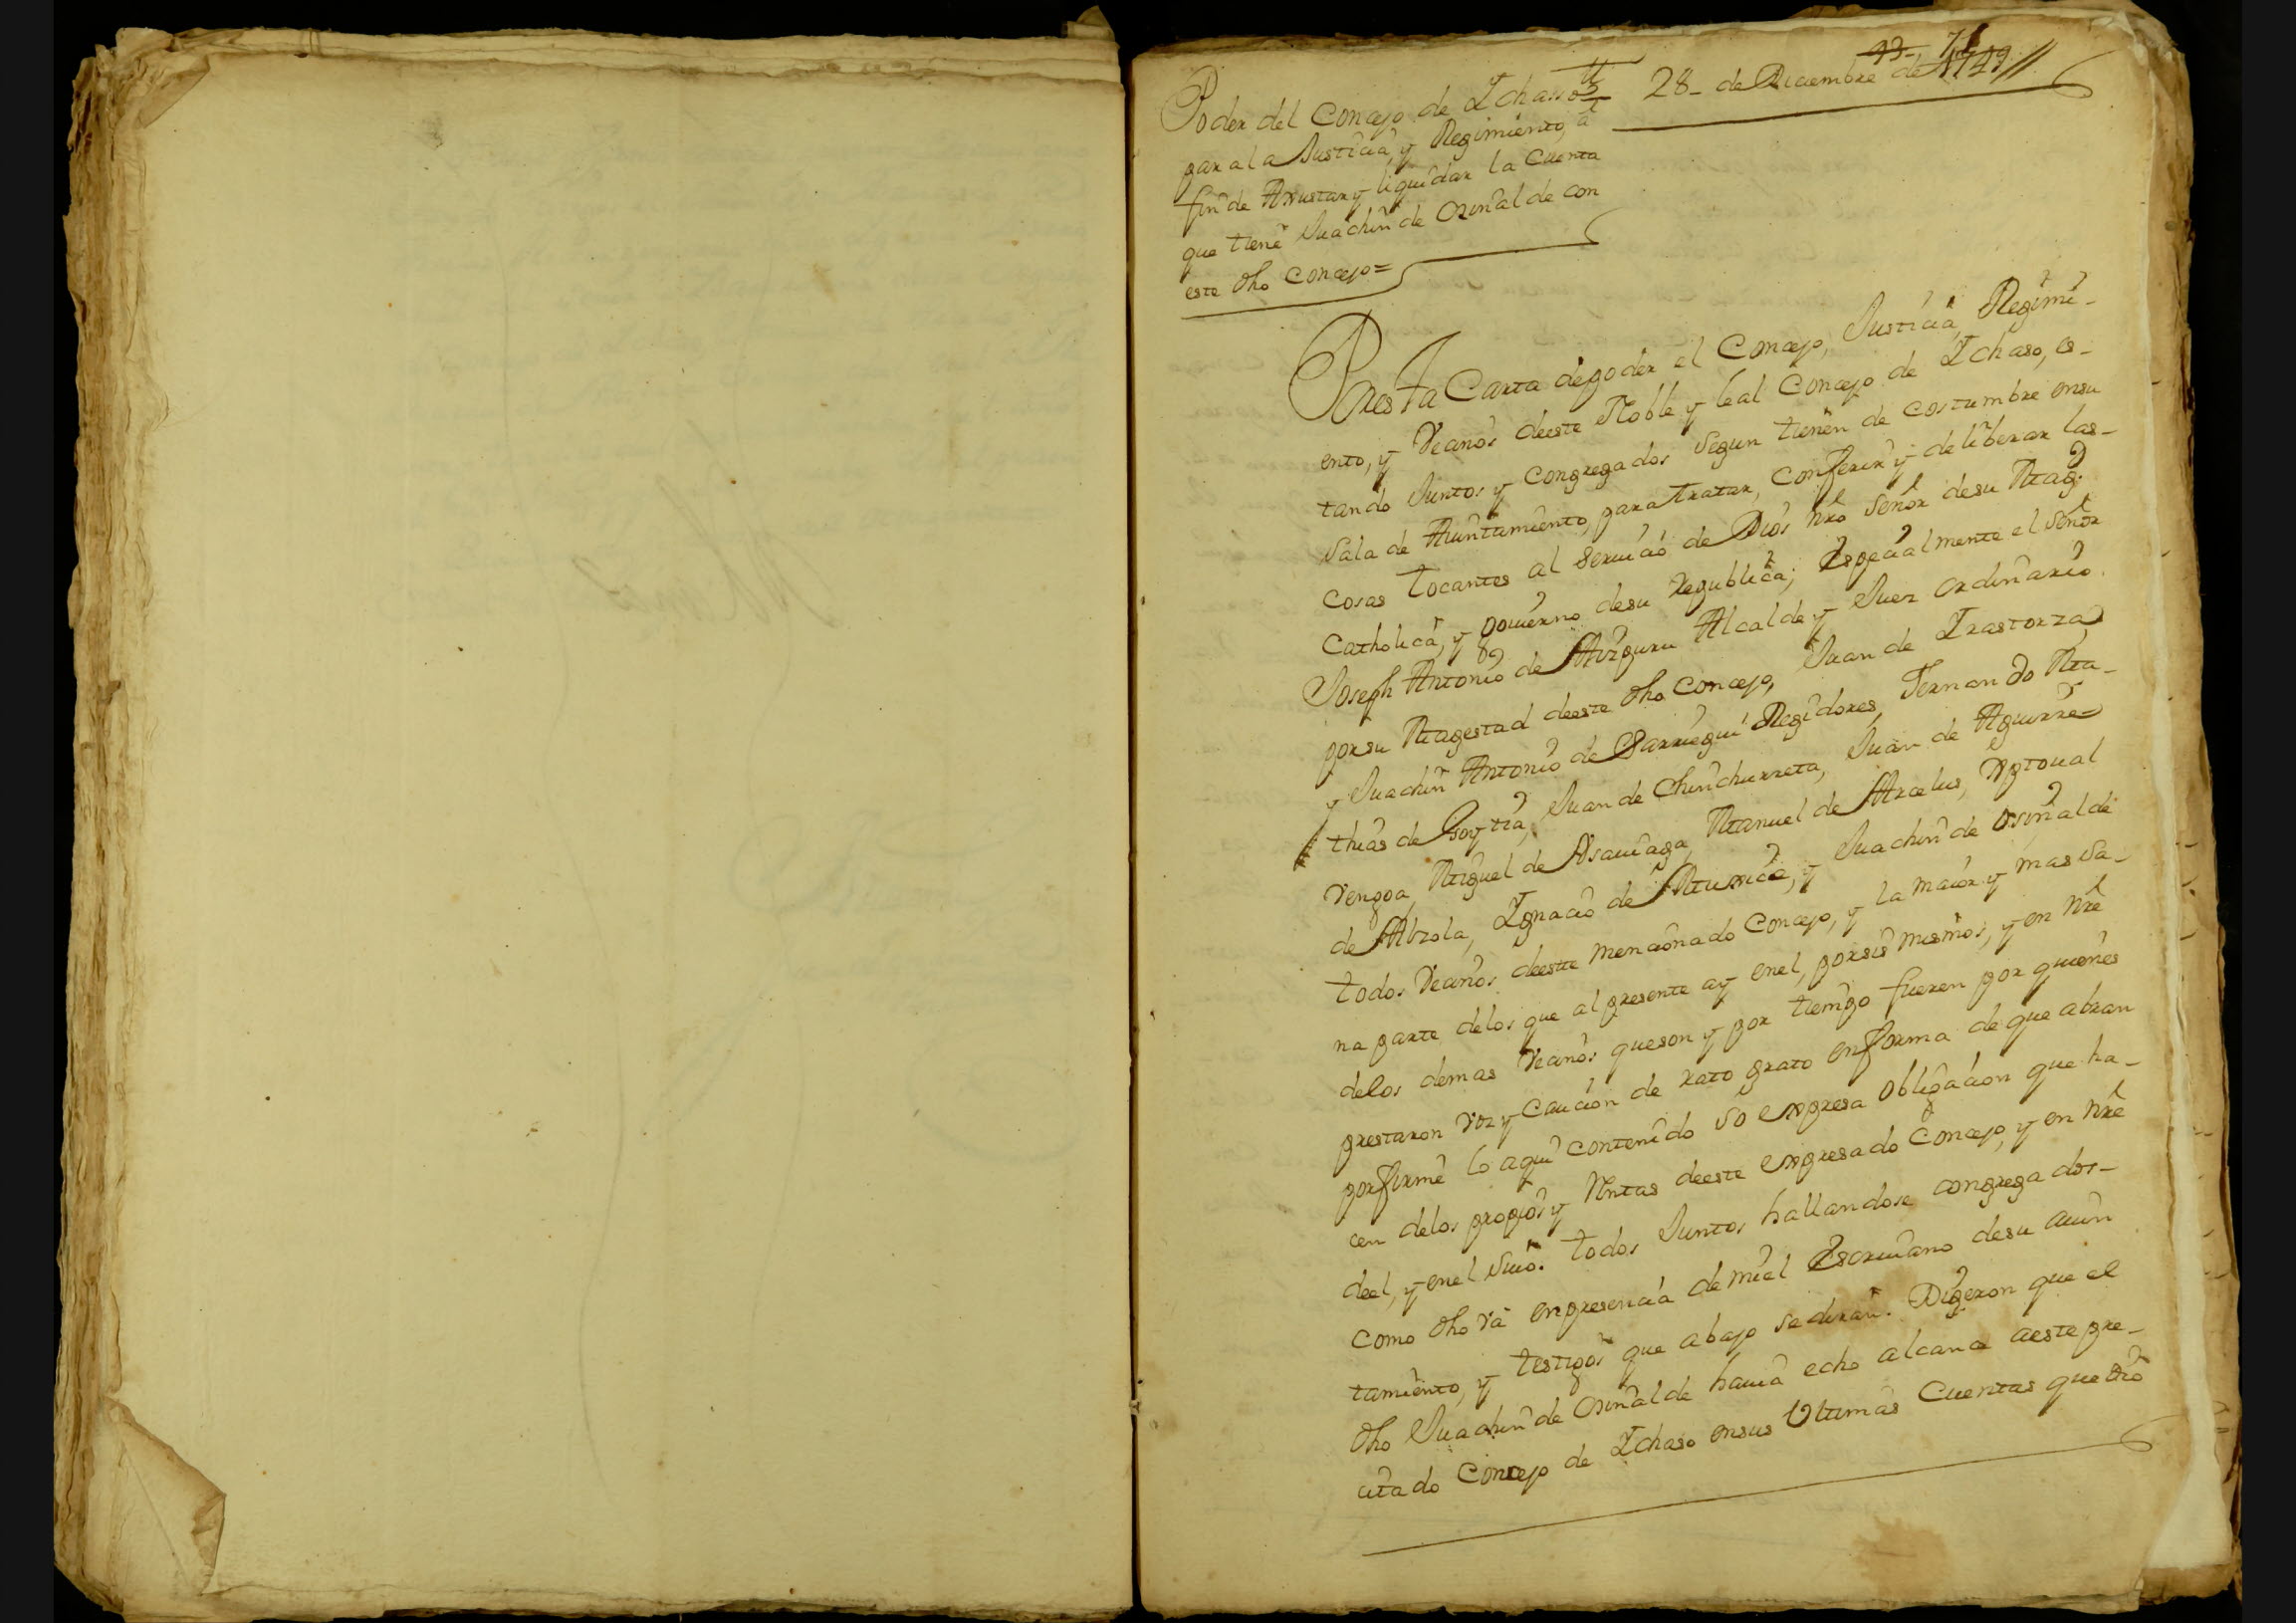 28 de Diciembre de 1749
Poder del Concejo de Ichasso
para la Justicia, y Regimiento, a
fin de Ajustar y liquidar la Cuenta
que tiene Juachin de Osinalde con
este dho Concejo=
Por esta Carta de poder el Concejo, Justicia, Regimi-
ento, y Vecinos de este Noble y leal Concejo de Ichaso, es-
tando Juntos y Congregados segun tienen de costumbre en su
Sala de Aiuntamiento, para tratar, Conferir y deliberar las
cosas tocantes al servicio de Dios nro señor de su Mag.
Catholica, y govierno de su republica; Especialmente el señor
Joseph Antonio de Aizpuru Alcalde y Juez ordinario
por su Magestad de este dho Concejo, Juan de Irastorza
y Juachin Antonio de Sarriegui Regidores, Fernando Ma-
thias de Goytia, Juan de Chinchurreta, Juan de Aguirre
Vengoa, Miguel de Asaviaga, Manuel de Arcelus, Xptoual
de Alzola, Ignacio de Munica, y Juachin de Osinalde
todos Vecinos de este mencionado Concejo, y la maior y mas sa-
na parte de los que al presente ay en el, por sis mismos, y en nre
de los demas Vecinos que son y por tiempo fueren por quienes
prestaron voz y Caucion de rato grato en forma de que abran
por firme lo aqui contenido so expresa obligacion que ha-
cen de los propios y Rentas de este expresado Concejo, y en nre
de el, y en el suio. todos Juntos hallandose congregados
como dho va en presencia de mi el Escriuano de su aiun
tamiento, y testigos que abajo se diran. Digeron que el
dho Juachin de Osinalde hauia echo alcance a este pre-
citado Concejo de Ichaso en sus Ultimas Cuentas que dio